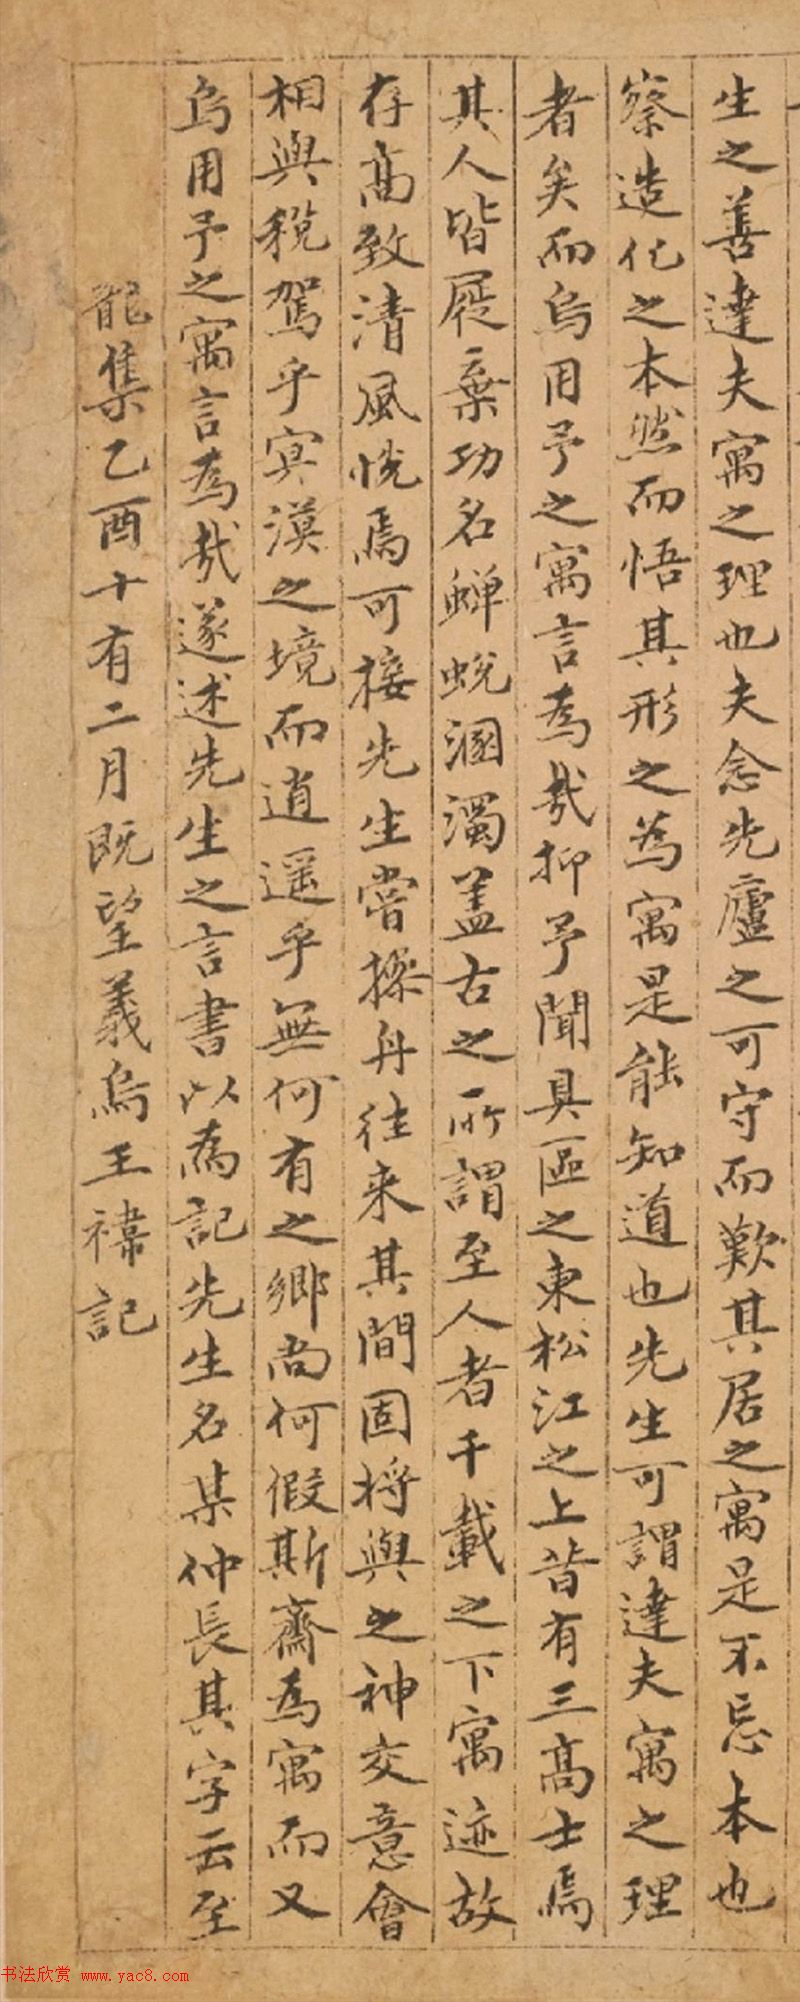 生之善達夫寓之理也夫念先廬之可守而歎其居之寓是不忘本也
察造化之本然而悟其形之為寓是能知道也先生可謂達夫寓之理
者矣而烏用予之寓言為哉抑予聞具區之東松江之上昔有三高士焉
其人皆屣棄功名蟬蛻溷濁蓋古之所謂至人者千載之下寓迹故
存高致清風恍焉可接先生嘗操舟往来其間固將與之神交意會
相與稅駕乎㝠漠之境而逍遥乎無何有之鄉尚何假斯齋為寓而又
烏用予之寓言為哉遂述先生之言書以為記先生名某仲長其字云至
龍集乙酉十有二月既望義烏王褘記
书法欣赏 www.yac8.com